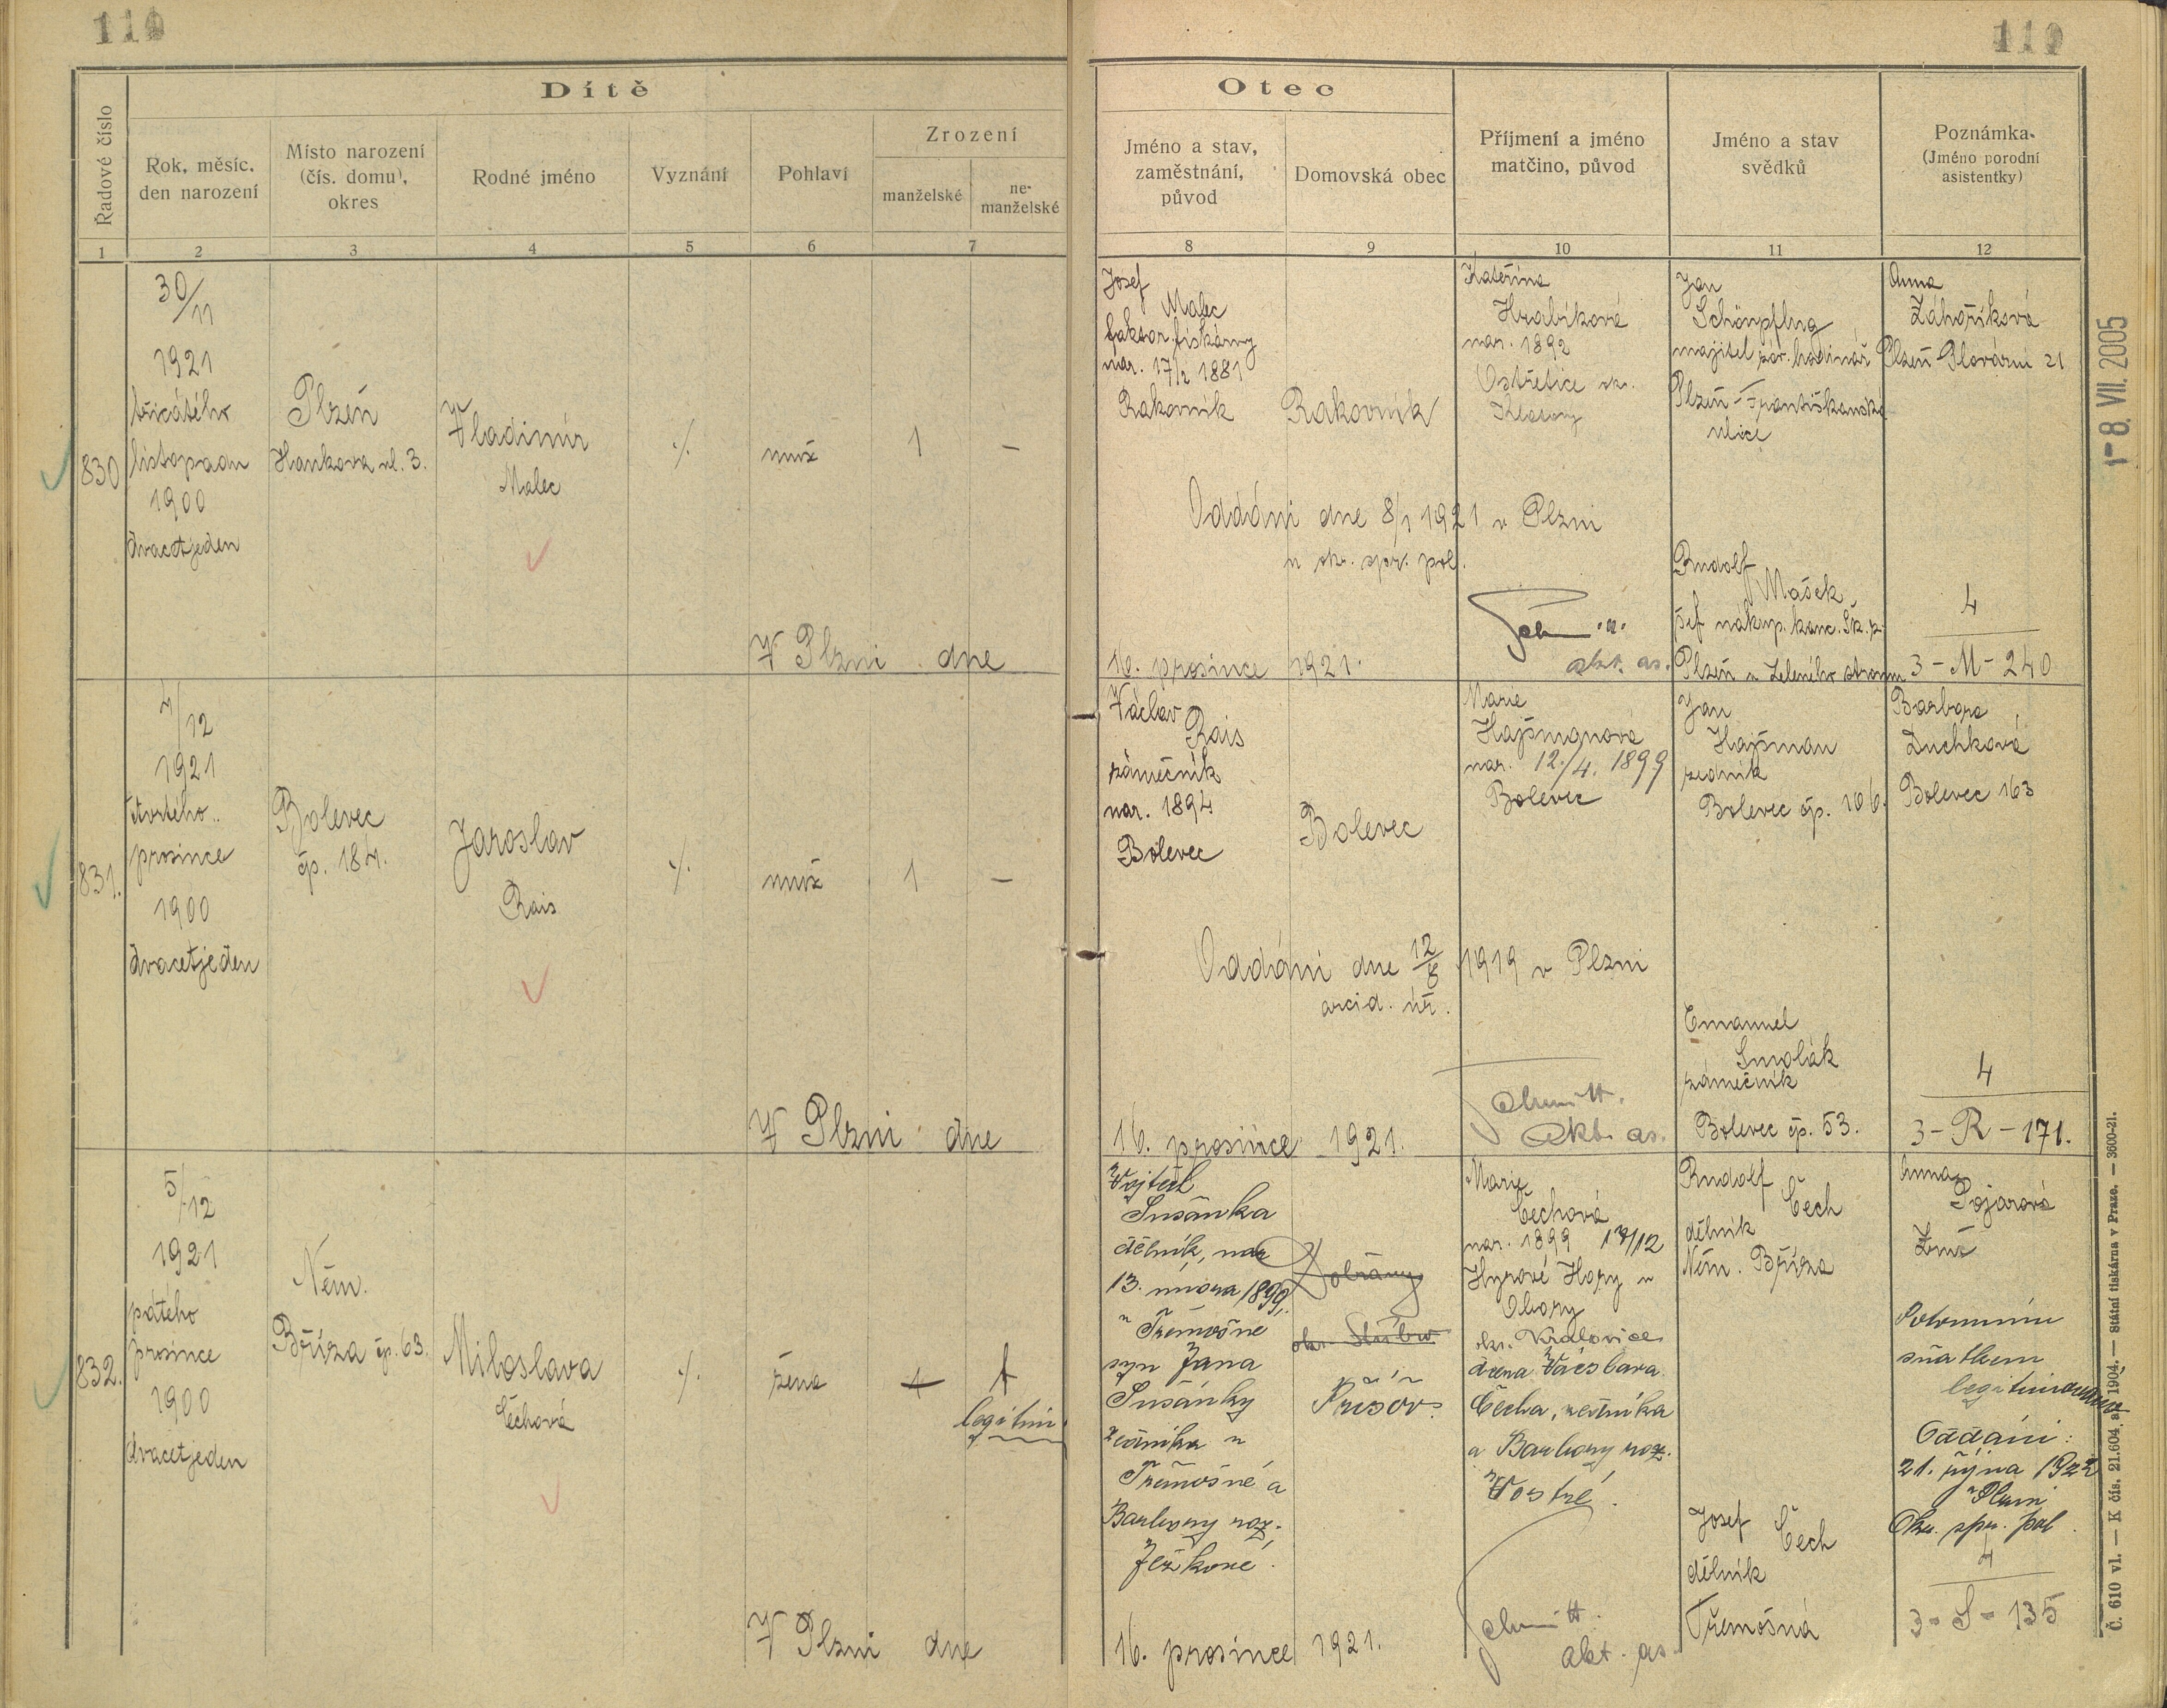 110
110
Dítě
Otec
Řadové číslo
Rok, měsíc,
den narození
Místo narození
(čís. domu),
okres
Rodné jméno
Vyznání
Pohlaví
Zrození
manželské
ne-
manželské
Jméno a stav,
zaměstnání,
původ
Domovská obec
Příjmení a jméno
matčino, původ
Jméno a stav
svědků
Poznámka.
(Jméno porodní
asistentky)
1
2
3
4
5
6
7
8
9
10
11
12
830
30/11
1921
třicátého
listopadu
1900
dvacetjeden
Plzeň
Hankova ul. 3.
Vladimír
Malec
./.
muž
1
—
Josef
Malec
faktor tiskárny
nar. 17/2 1881
Rakovník
Rakovník
Kateřina
Hrabíková
nar. 1892
Ostřetice okr.
Klatovy
Jan
Schönpflug
majitel záv. hodinář
Plzeň - Františkánská
ulice
Anna
Záhoříková
Plzeň Plovární 21
Oddáni dne 8/1 1921 v Plzni
u okr. spr. pol.
Rudolf
Mašek
šef nákup. kanc. Šk. z.
Plzeň u Zeleného stromu
4
3 - M - 240
V Plzni dne
16. prosince 1921.
akt. as.
831.
4/12
1921
čtvrtého
prosince
1900
dvacetjeden
Bolevec
čp. 184.
Jaroslav
Rais
./.
muž
1
—
Václav
Rais
zámečník
nar. 1894
Bolevec
Bolevec
Marie
Hajšmanová
nar. 12./4. 1899
Bolevec
Jan
Hajšman
zedník
Bolevec čp. 106.
Barbora
Duchková
Bolevec 163
Oddáni dne 12/8 1919 v Plzni
arcid. úř.
Emanuel
Smolák
zámečník
Bolevec čp. 53.
4
3 - R - 171.
V Plzni dne
16. prosince 1921.
Schmitt.
akt. as.
832.
5/12
1921
pátého
prosince
1900
dvacetjeden
Něm.
Bříza čp. 63.
Miloslava
Čechová
./.
žena
1
1
legitim.
Vojtěch
Sušánka
dělník, nar
13. února 1899,
v Třemošné
syn Jana
Sušánky
zedníka v
Třemošné a
Barbory roz.
Ježkové.
Dobřany
okr. Stříbro
Příšov.
Marie
Čechová
nar. 1899 17/12
Hory u
Obory
okr. Kralovice
dcera Václava
Čecha, zedníka
a Barbory roz.
Vostré.
Rudolf
Čech
dělník
Něm. Bříza
Josef
Čech
dělník
Třemošná
Anna
Pojarová
Zruč
sňatkem
legitimována
Oddáni:
21. října 1922
v Plzni
Okr. spr. pol.
4
3 - S - 135
V Plzni dne
16. prosince 1921.
Schmitt.
akt. as.
1 - 8. VII. 2005
Č. 610 vl. — K čís. 21.604 a/I 1904. — Státní tiskárna v Praze. — 3600-21.